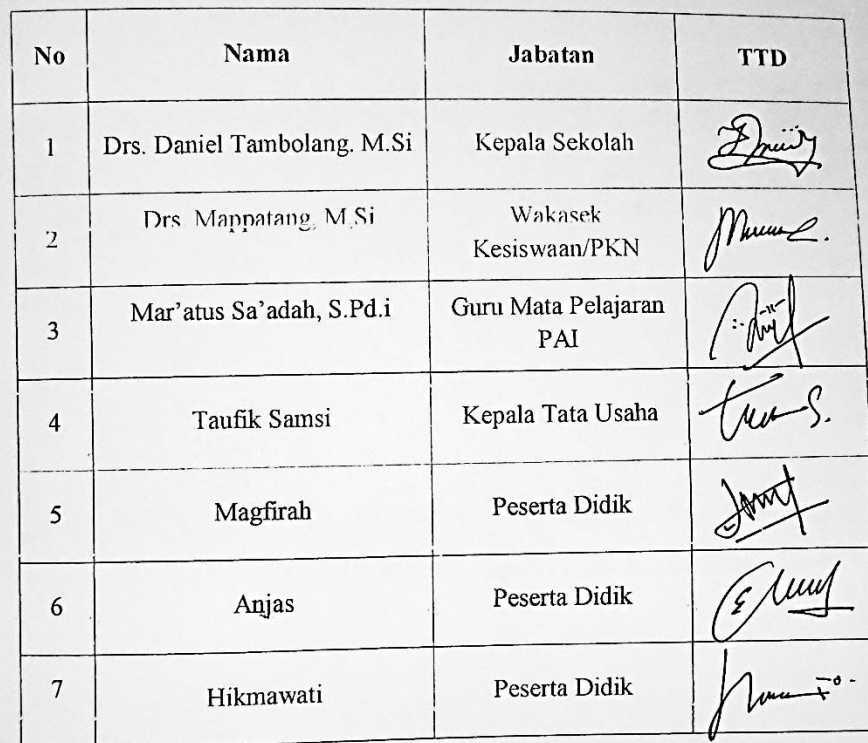 No Nama Jabatan TTD
1 Drs. Daniel Tambolang. M.Si Kepala Sekolah
2 Drs. Mappatang, M.Si Wakasek
Kesiswaan/PKN
3 Mar'atus Sa'adah, S.Pd.i Guru Mata Pelajaran
PAI
4 Taufik Samsi Kepala Tata Usaha
5 Magfirah Peserta Didik
6 Anjas Peserta Didik
7 Hikmawati Peserta Didik